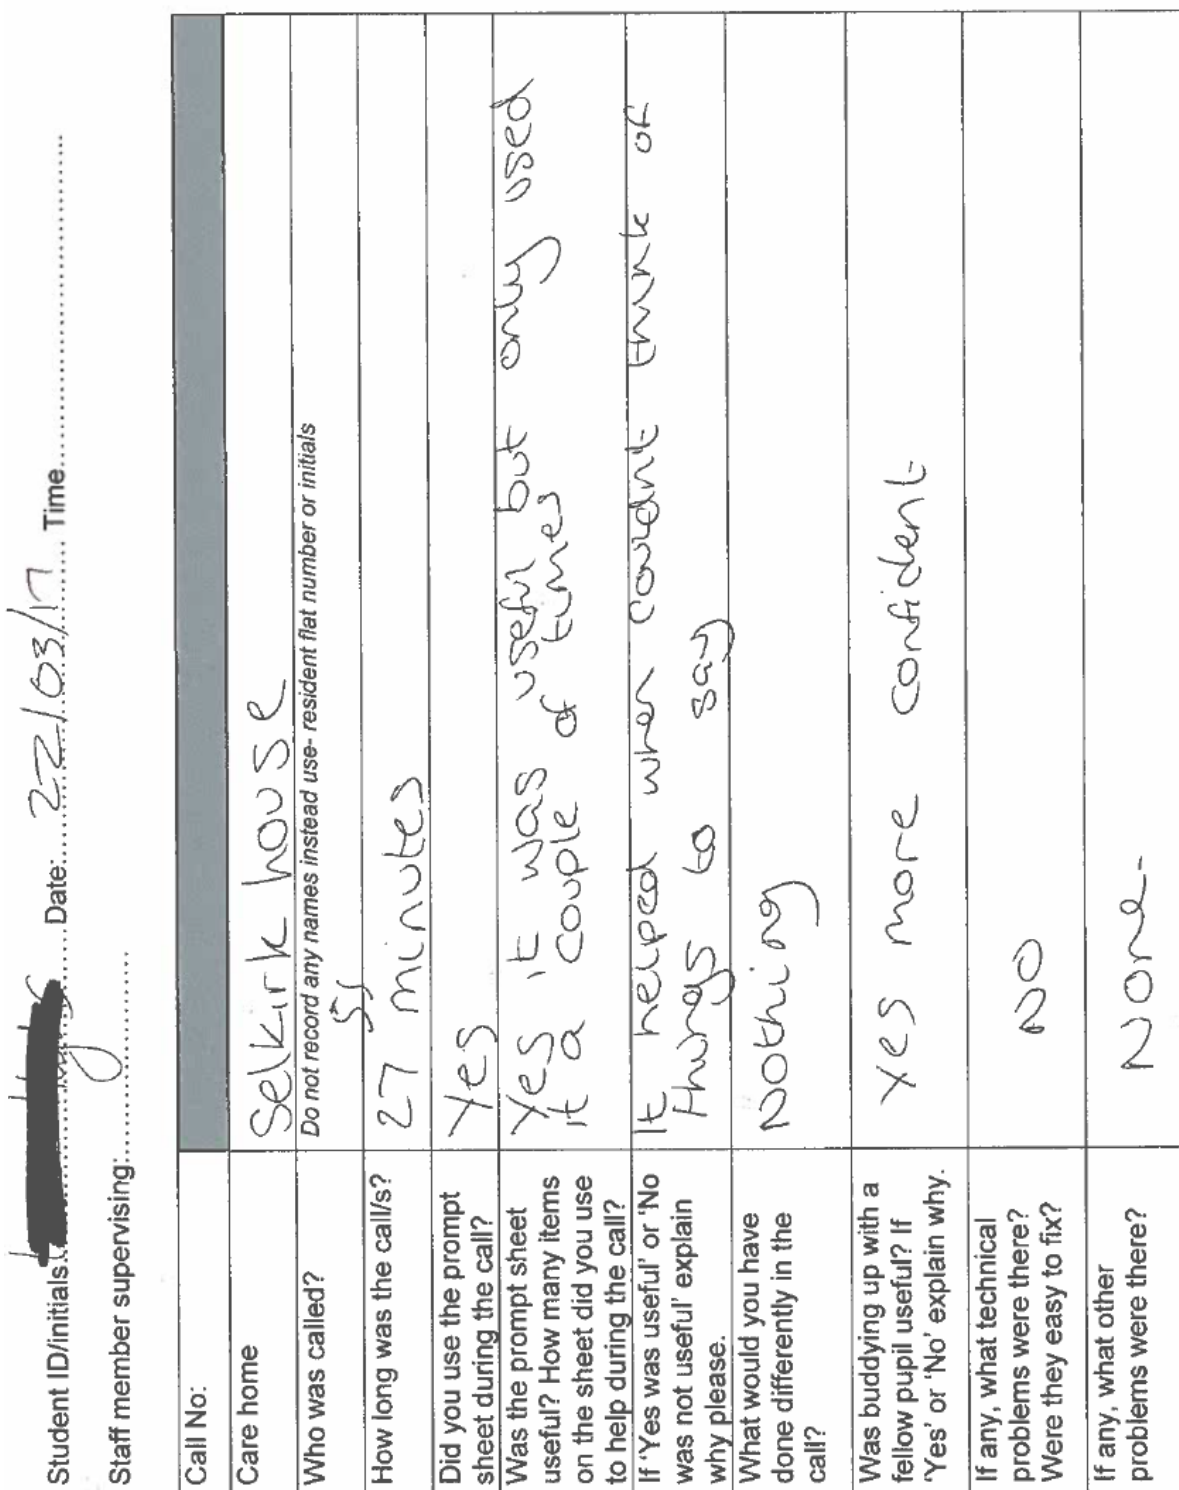 Student ID/initials. Date: 22/03/17 Time
Staff member supervising:
Call No:
Care home
Selkirk house
Who was called?
Do not record any names instead use- resident flat number or initials
How long was the call/s?
27 minutes
Did you use the prompt
sheet during the call?
Yes
Was the prompt sheet
useful? How many items
on the sheet did you use
to help during the call?
Yes it was useful but only used
it a couple of times
If 'Yes was useful' or 'No
was not useful' explain
why please.
It helped when couldnt think of
things to say
What would you have
done differently in the
call?
Nothing
Was buddying up with a
fellow pupil useful? If
'Yes' or 'No' explain why.
Yes more confident
If any, what technical
problems were there?
Were they easy to fix?
NO
If any, what other
problems were there?
None.